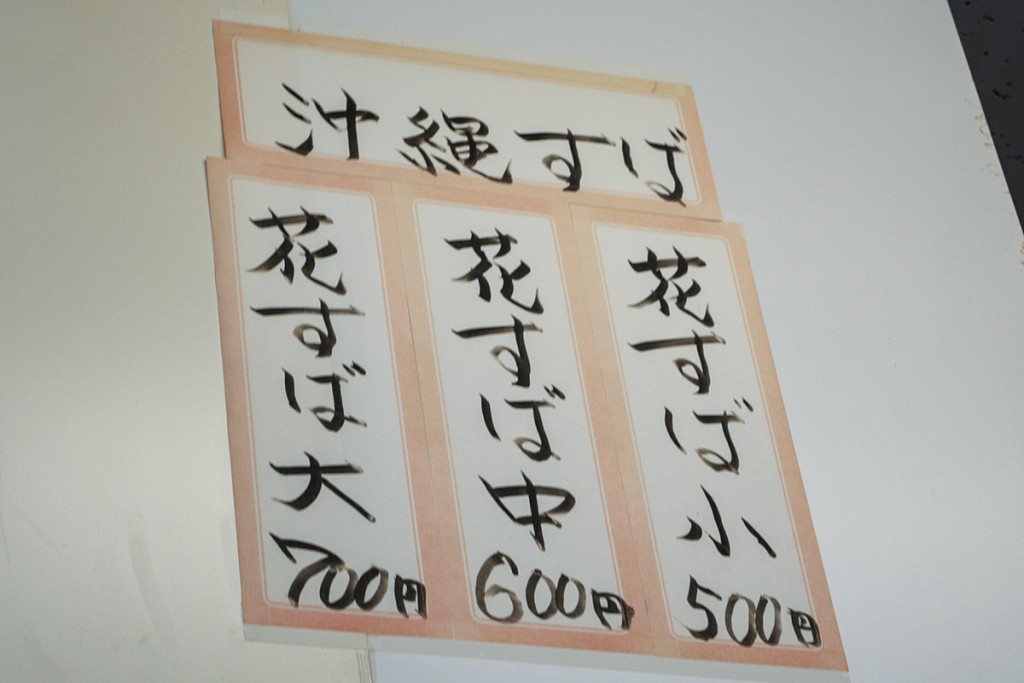 沖縄すば
花すば小
500円
花すば中
600円
花すば大
700円